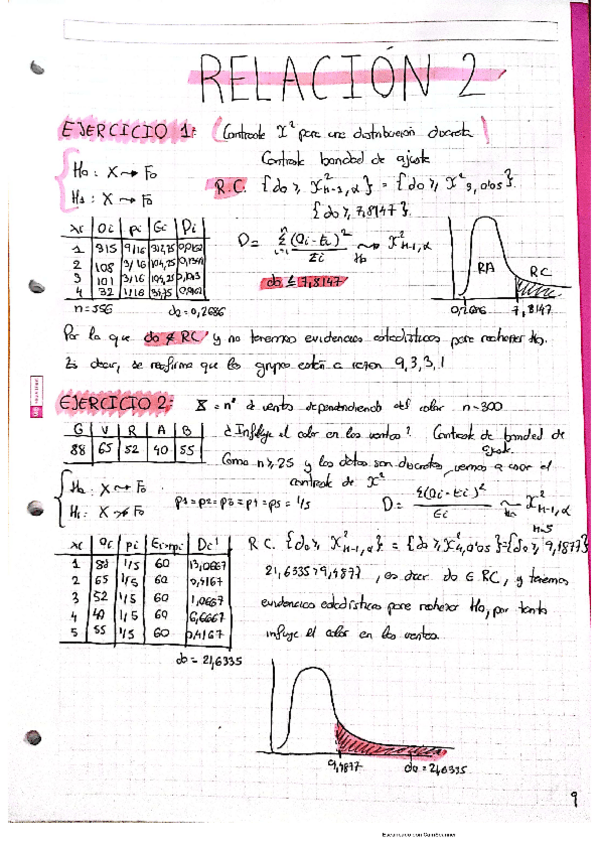 RELACIÓN 2
EJERCICIO 1: (Contraste X² para una distribución discreta)
Contraste bondad de ajuste
H0: X → F0
H1: X → F0
R.C. {d0 ≥ X²n-1,α} = {d0 ≥ X²3,0'05}
{d0 ≥ 7,8147}.
xi | Oi | pi | Ei | Di
1 | 315 | 9/16 | 312,75
2 | 108 | 3/16 | 104,25
3 | 101 | 3/16 | 104,25
4 | 32 | 1/16 | 34,75
n=556 d0=0,2686
D = Σ (Oi-Ei)²/Ei ~ X²n-1,α
H0
d0 ≤ 7,8147
RA RC
7,8147
Por lo que d0 ∉ RC y no tenemos evidencias estadísticas para rechazar H0.
Es decir, se reafirma que los grupos están a razón 9,3,3,1
EJERCICIO 2: X = nº de ventas dependiendo del color n=300
G | V | R | A | B
88 | 65 | 52 | 40 | 55
¿Influye el color en las ventas? Contraste de bondad de ajuste.
Como n≥25 y los datos son discretos, vamos a usar el
contraste de X²
H0: X → F0
H1: X ↛ F0
p1=p2=p3=p4=p5=1/5
D = Σ(Oi-Ei)²/Ei ~ X²n-1,α
H0
n=5
xi | Oi | pi | Ei=npi | Di
1 | 88 | 1/5 | 60 | 13,0667
2 | 65 | 1/5 | 60 | 0,4167
3 | 52 | 1/5 | 60 | 1,0667
4 | 40 | 1/5 | 60 | 6,6667
5 | 55 | 1/5 | 60 | 0,4167
d0 = 21,6335
R.C. {d0 ≥ X²n-1,α} = {d0 ≥ X²4,0'05} = {d0 ≥ 9,4877}
21,6335 > 9,4877, es decir d0 ∈ RC, y tenemos
evidencias estadísticas para rechazar H0, por tanto
influye el color en las ventas.
9,4877 d0 = 21,6335
9
Escaneado con CamScanner